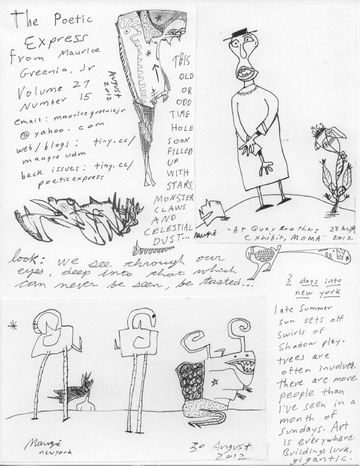 The Poetic
Express
from Maurice
Greenia, Jr
Volume 27
Number 15
August
2012
email: mauricegreeniajr
@yahoo.com
web/blogs: tiny.cc/
maugre udm
back issues: tiny.cc/
poeticexpress
THIS
OLD
OR
ODD
TIME
HOLE
SOON
FILLED
UP
WITH
STARS,
MONSTER
CLAWS
AND
CELESTIAL
DUST...
Maugré
-At Quay Brothers
exhibit, MOMA
2012
look: we see through our
eyes, deep into that which
can never be seen, be tasted...
3 days into
new york
late summer
sun sets off
swirls of
shadow play.
trees are
often involved.
there are more
people than
I've seen in a
month of
sundays. Art
is everywhere.
Buildings lurk,
gigantic.
Maugré
new york
30 August
2012